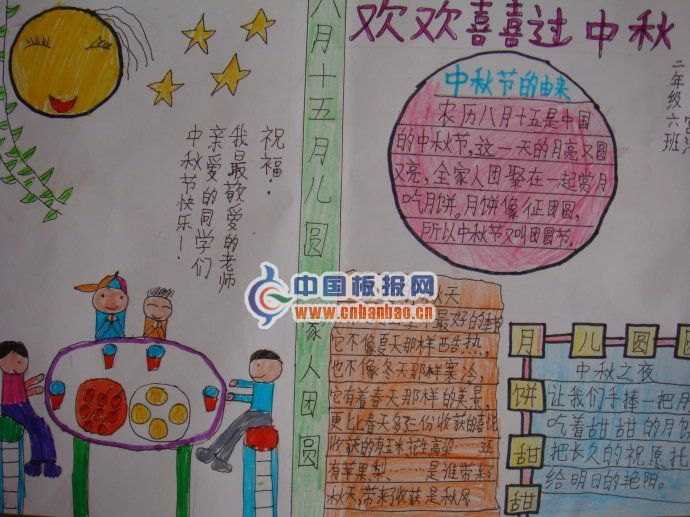 欢欢喜喜过中秋
二年级
六班
八月十五月儿圆
家人团圆
祝福：
我最敬爱的老师
亲爱的同学们
中秋节快乐！
中秋节的由来
农历八月十五是中国
的中秋节，这一天的月亮又圆
又亮，全家人团聚在一起赏月
吃月饼。月饼像征团圆，
所以中秋节又叫团圆节。
中国板报网
www.cnbanbao.cn
秋天
最好的季节
它不像夏天那样酷热，
也不像冬天那样寒冷，
它有着春天那样的美景，
更比春天多了份收获的喜悦
收获的有玉米花生高粱……
有苹果梨……是谁带来
秋天，带来收获是秋风
月儿圆
饼甜甜
中秋之夜
让我们手捧一把月
吃着甜甜的月饼
把长久的祝愿托
给明日的艳阳。